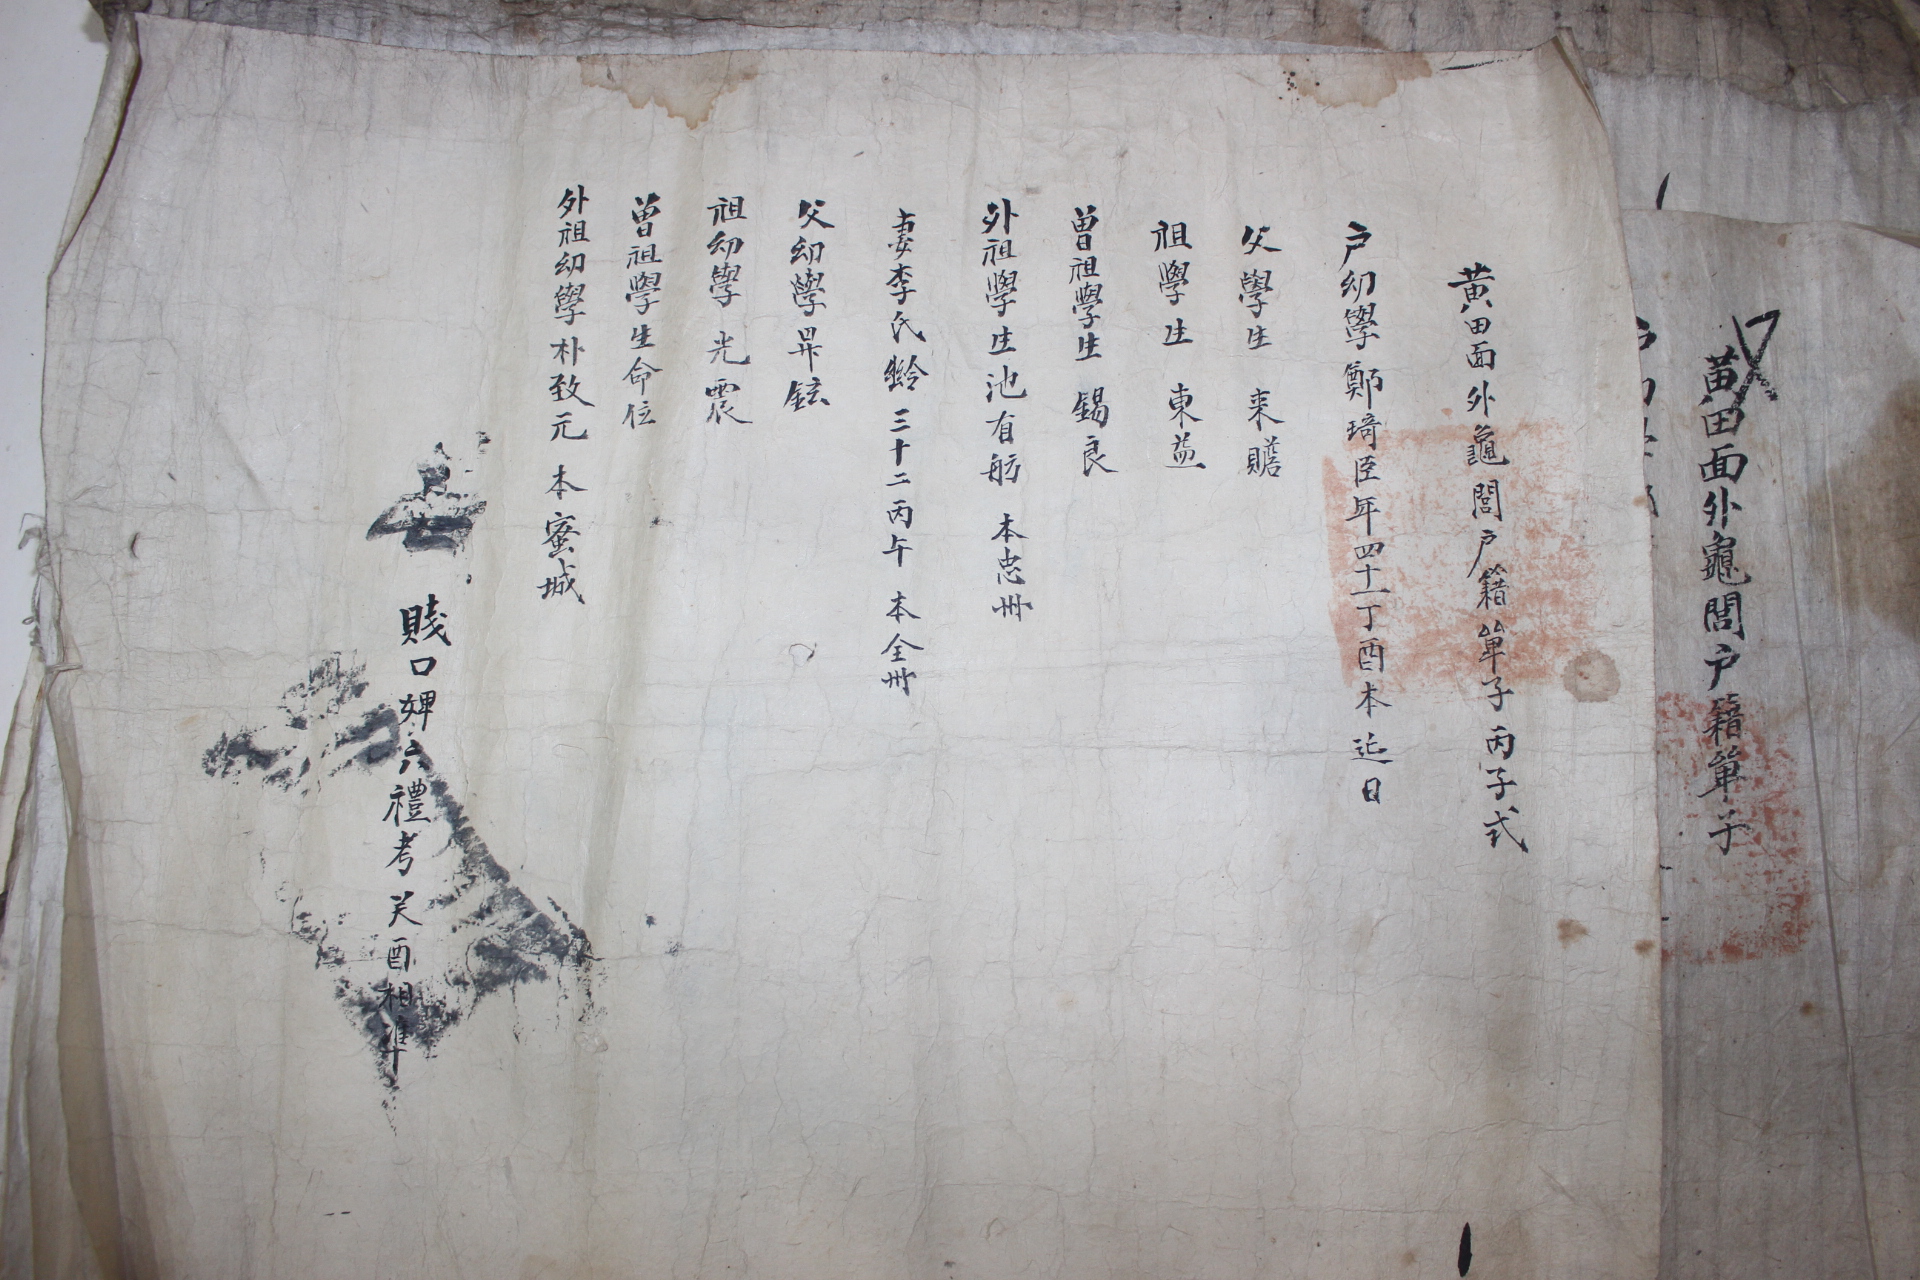 黄田面外龜閭戶籍單子
黄田面外龜閭戶籍單子丙子式
戶幼學鄭琦臣年四十丁酉本延日
父學生 來贍
祖學生 東益
曾祖學生 錫良
外祖學生池有舫 本忠州
妻李氏齡三十二丙午 本全州
父幼學昇鉉
祖幼學 光震
曾祖學生命位
外祖幼學朴致元 本密城
賤口婢六禮考癸酉相準